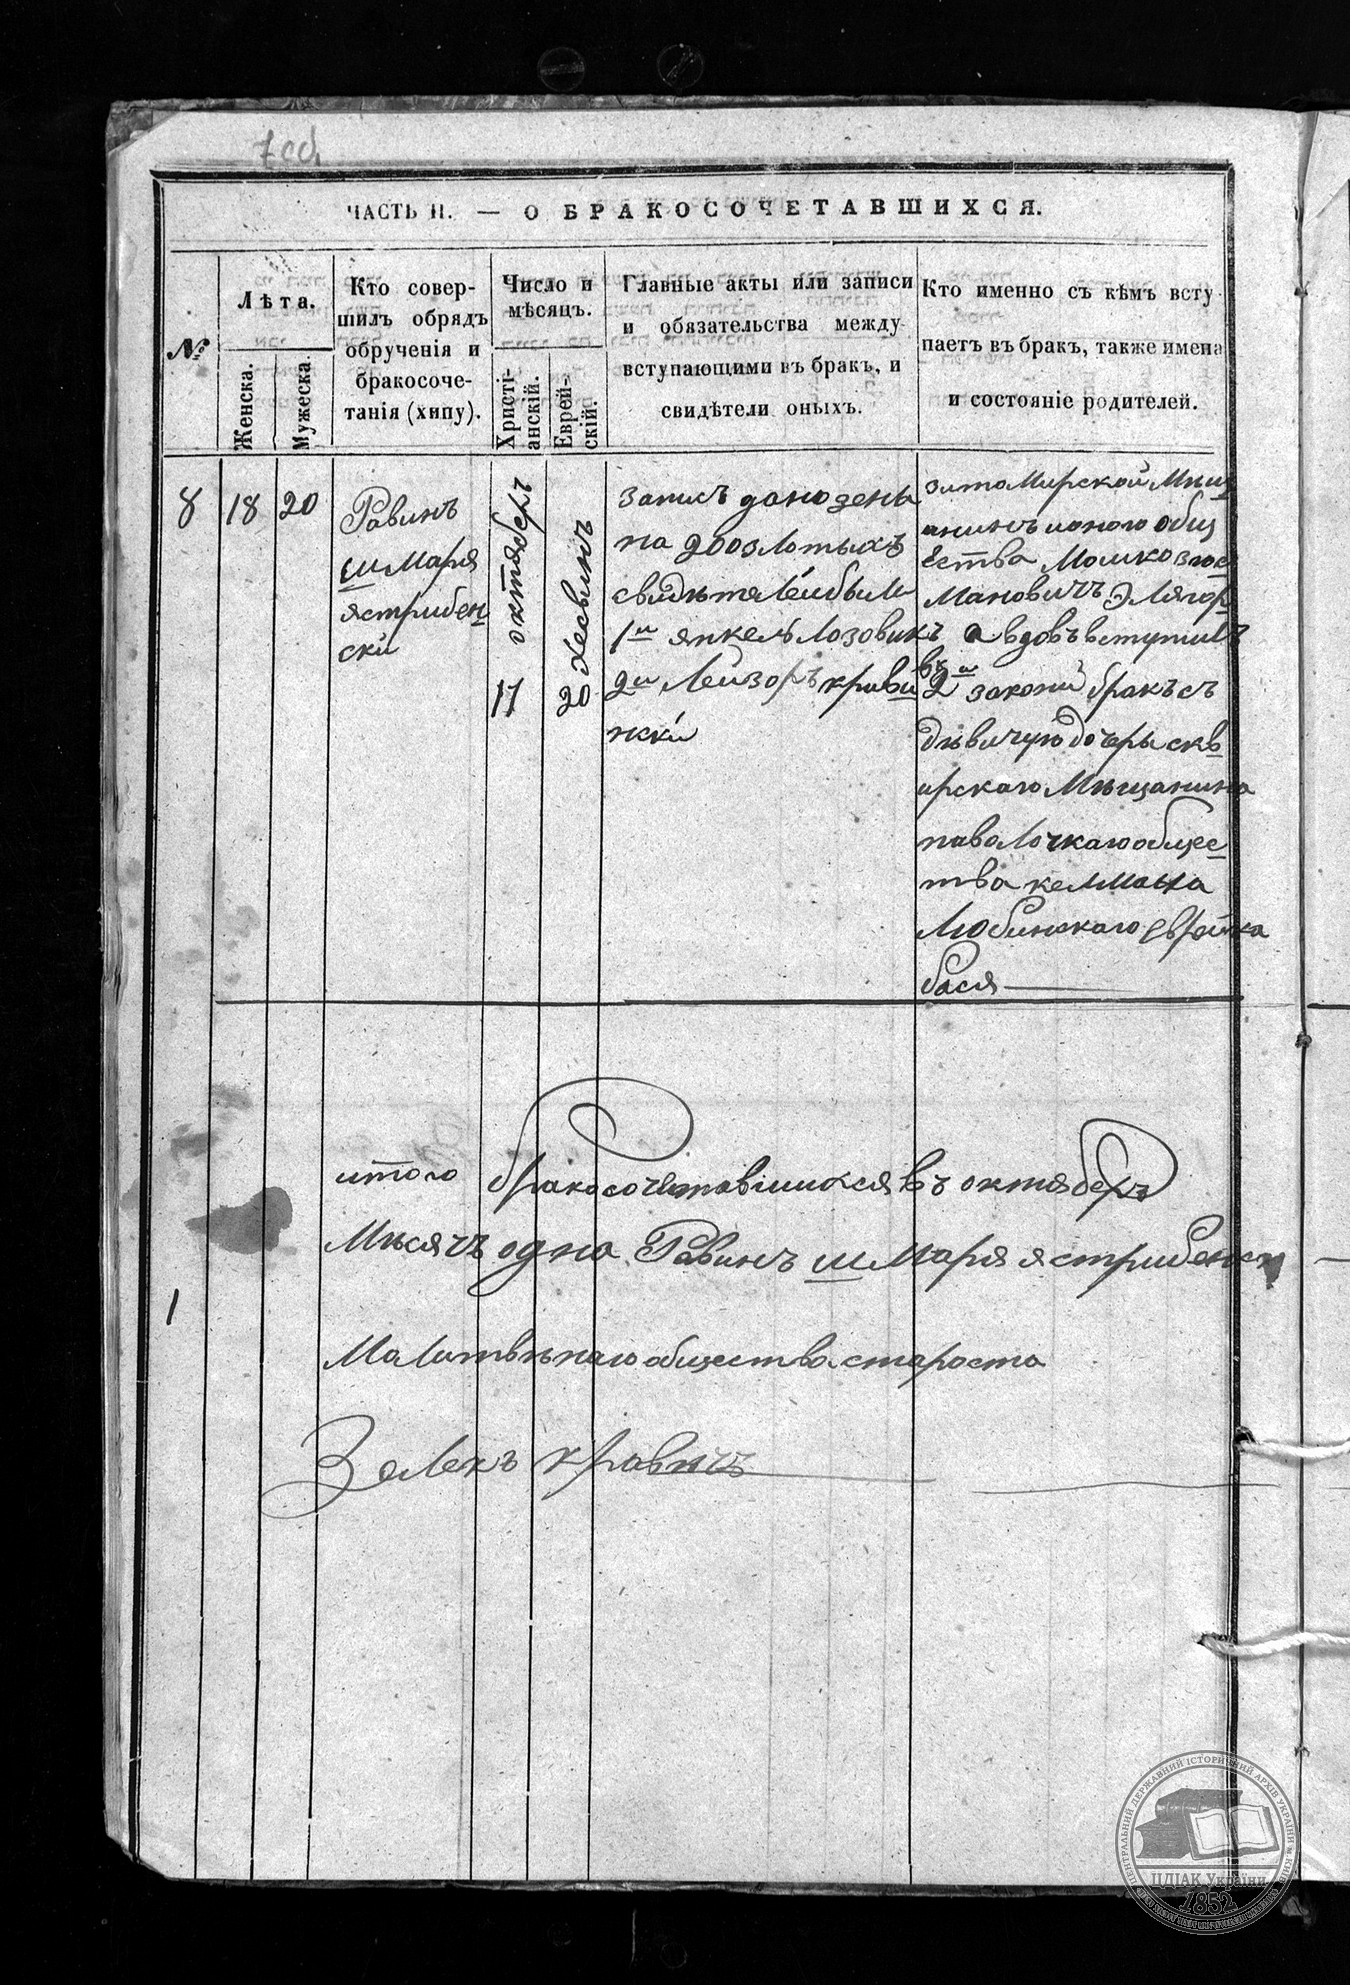 7 об
ЧАСТЬ II. — О БРАКОСОЧЕТАВШИХСЯ.
№
Лѣта.
Женска.
Мужеска.
Кто совер-
шилъ обрядъ
обрученія и
бракосоче-
танія (хипу).
Число и
мѣсяцъ.
Христі-
анскій.
Еврей-
скій.
Главные акты или записи
и обязательства между
вступающими въ бракъ, и
свидѣтели оныхъ.
Кто именно съ кѣмъ всту
паетъ въ бракъ, также имена
и состояніе родителей.
8
18
20
Равинъ
шмаря
ястрибен
ски
октяберъ
17
Хесвинъ
20
запись дано зень
на 200 злотыхъ
свидѣтели были
1и янкель лозовикъ
2и лейзоръ криви
жки
житомирской мѣщ
анинъ оного общ
ества мошко
мановичъ
а вдовъ вступилъ
въ 2и законй бракъ съ
дѣвичую дочеры скв
ирскаго мѣщанина
паволочкаго общес
тва келмана
любинскаго еврейка
бася
итого бракосочетавшихся въ октяберъ
мѣсяцъ одна Равинъ шмаря ястрибенски
1
Молитвѣнаго общества староста
Залекъ кравецъ
ЦЕНТРАЛЬНИЙ ДЕРЖАВНИЙ ІСТОРИЧНИЙ АРХІВ УКРАЇНИ М. КИЇВ
ЦДІАК України
1852